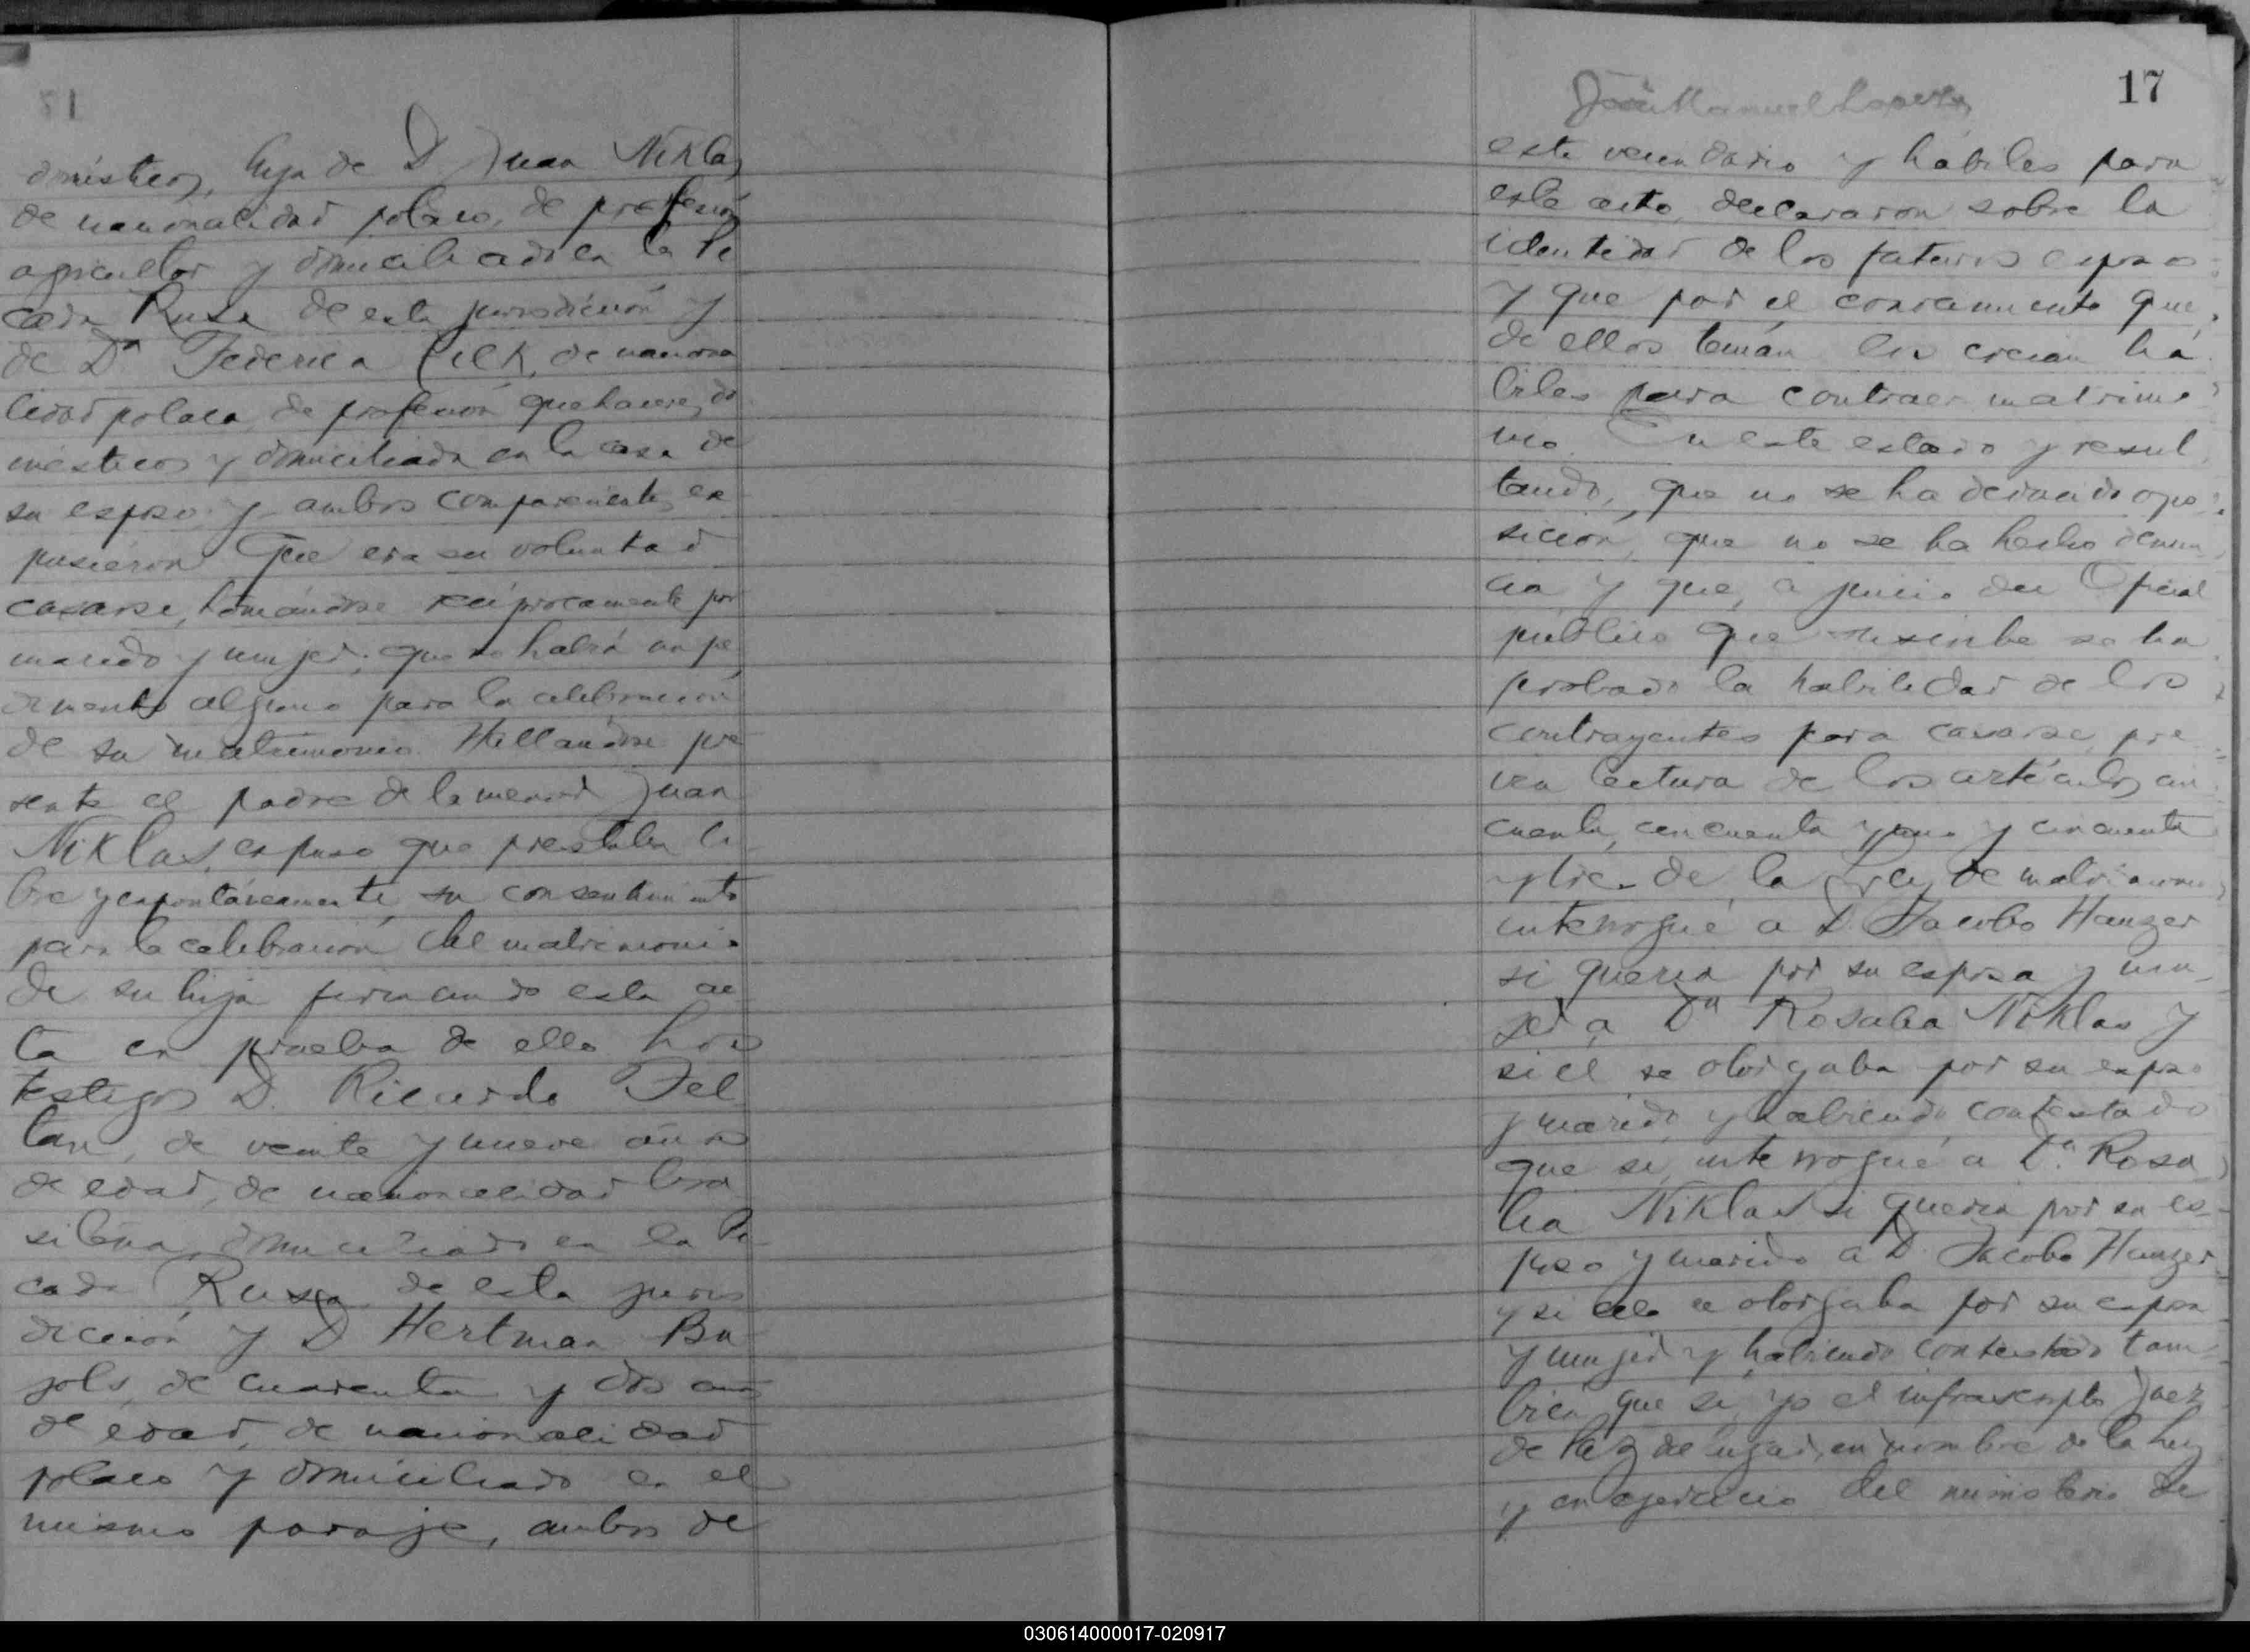 domésticos, hija de D Juan Niklas,
de nacionalidad polaco, de profesión
agricultor y domiciliado en la Pi
cada Rusa de esta jurisdicción y
de Dª Federica de naciona
lidad polaca, de profesión quehaceres do
mésticos y domiciliada en la casa de
su esposo y ambos comparecientes, ex
pusieron Que era su voluntad
casarse, tomándose recíprocamente por
marido y mujer; que no habrá impe
dimento alguno para la celebración
de su matrimonio. Hallandose pre
sente el padre de la menor Juan
Niklas, expuso que prestaba li
bre y espontáneamente su consentimiento
para la celebración del matrimonio
de su hija firmando esta ac
ta en prueba de ello Los
testigos D. Ricardo Fel
tan, de veinte y nueve años
de edad, de nacionalidad bra
sileña, domiciliado en la Pi
cada Rusa de esta juris
dicción y D Hertman Bu
de cuarenta y dos años
de edad, de nacionalidad
polaco y domiciliado en el
mismo paraje, ambos de
17
Juan Manuel
este vecindario y hábiles para
este acto, declararon sobre la
identidad de los futuros esposos
y que por el conocimiento que
de ellos tenían los creían há
biles para contraer matrimo
nio. En este estado y resul
tando, que no se ha deducido opo
sición, que no se ha hecho denun
cia y que, a juicio del Oficial
público que suscribe se ha
probado la habilidad de los
contrayentes para casarse, pre
via lectura de los artículos cin
cuenta, cincuenta y uno y cincuenta
y tres de la Ley de matrimonio,
interrogué a D. Jacobo Hanzer
si quería por su esposa y mu
jer a Dª Rosalia Niklas y
si el se otorgaba por su esposo
y marido, y habiendo contestado
que si, interrogué a Dª Rosa
lia Niklas si quería por su es
poso y marido a D. Jacobo Hanzer
y si ella se otorgaba por su esposa
y mujer y habiendo contestado tam
bién que si, yo el infrascripto Juez
de Paz del lugar, en nombre de la Ley
y en ejercicio del ministerio de
030614000017-020917